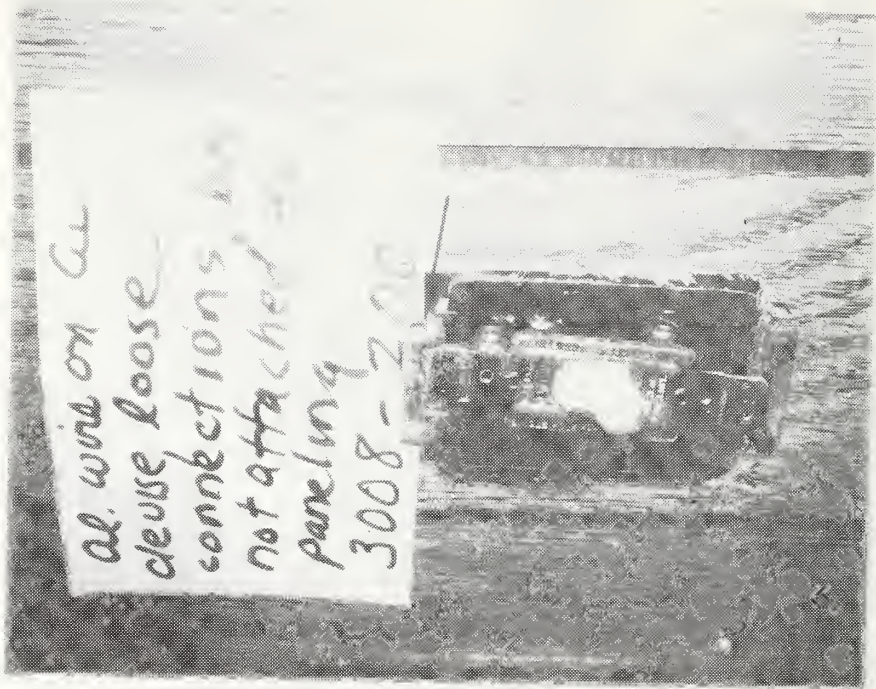 al. wire on Cu
devise loose
connections,
not attached
paneling
3008-